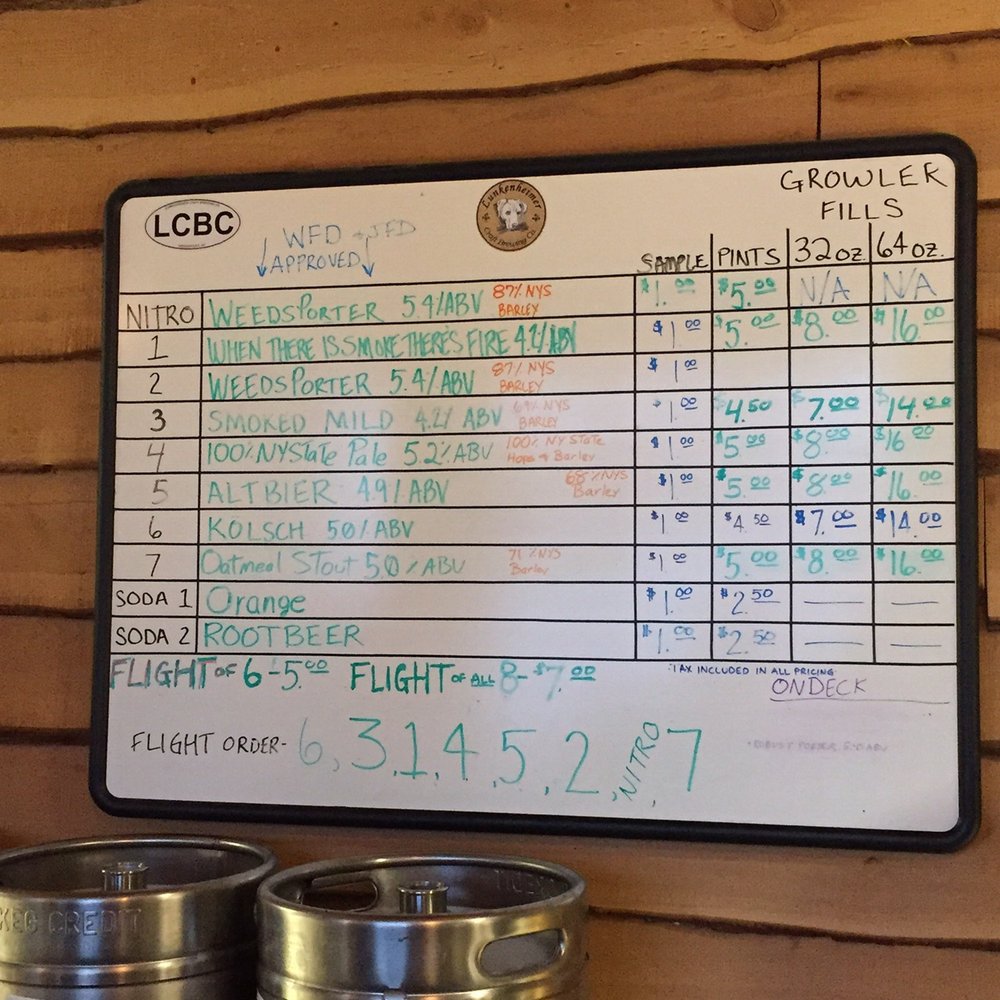 GROWLER
FILLS
LCBC
Lunkenheimer
Craft Brewing Co.
WFD + JFD
APPROVED
SAMPLE PINTS 32 oz. 64 oz.
NITRO WEEDSPORTER 5.4% ABV 87% NYS BARLEY $1.00 $5.00 N/A N/A
1 WHEN THERE IS SMOKE THERE'S FIRE 4.2% ABV $1.00 $5.00 $8.00 $16.00
2 WEEDSPORTER 5.4% ABV 87% NYS BARLEY $1.00
3 SMOKED MILD 4.2% ABV 69% NYS BARLEY $1.00 $4.50 $7.00 $14.00
4 100% NYState Pale 5.2% ABV 100% NY State Hops & Barley $1.00 $5.00 $8.00 $16.00
5 ALTBIER 4.9% ABV 68% NYS Barley $1.00 $5.00 $8.00 $16.00
6 KOLSCH 5.0% ABV $1.00 $4.50 $7.00 $14.00
7 Oatmeal Stout 5.0% ABV 71% NYS Barley $1.00 $5.00 $8.00 $16.00
SODA 1 Orange $1.00 $2.50 — —
SODA 2 ROOTBEER $1.00 $2.50 — —
FLIGHT OF 6 - 5.00 FLIGHT OF ALL 8 - $7.00 *TAX INCLUDED IN ALL PRICING
ONDECK
FLIGHT ORDER- 6, 3, 1, 4, 5, 2, NITRO, 7
ROBUST PORTER
KEG CREDIT